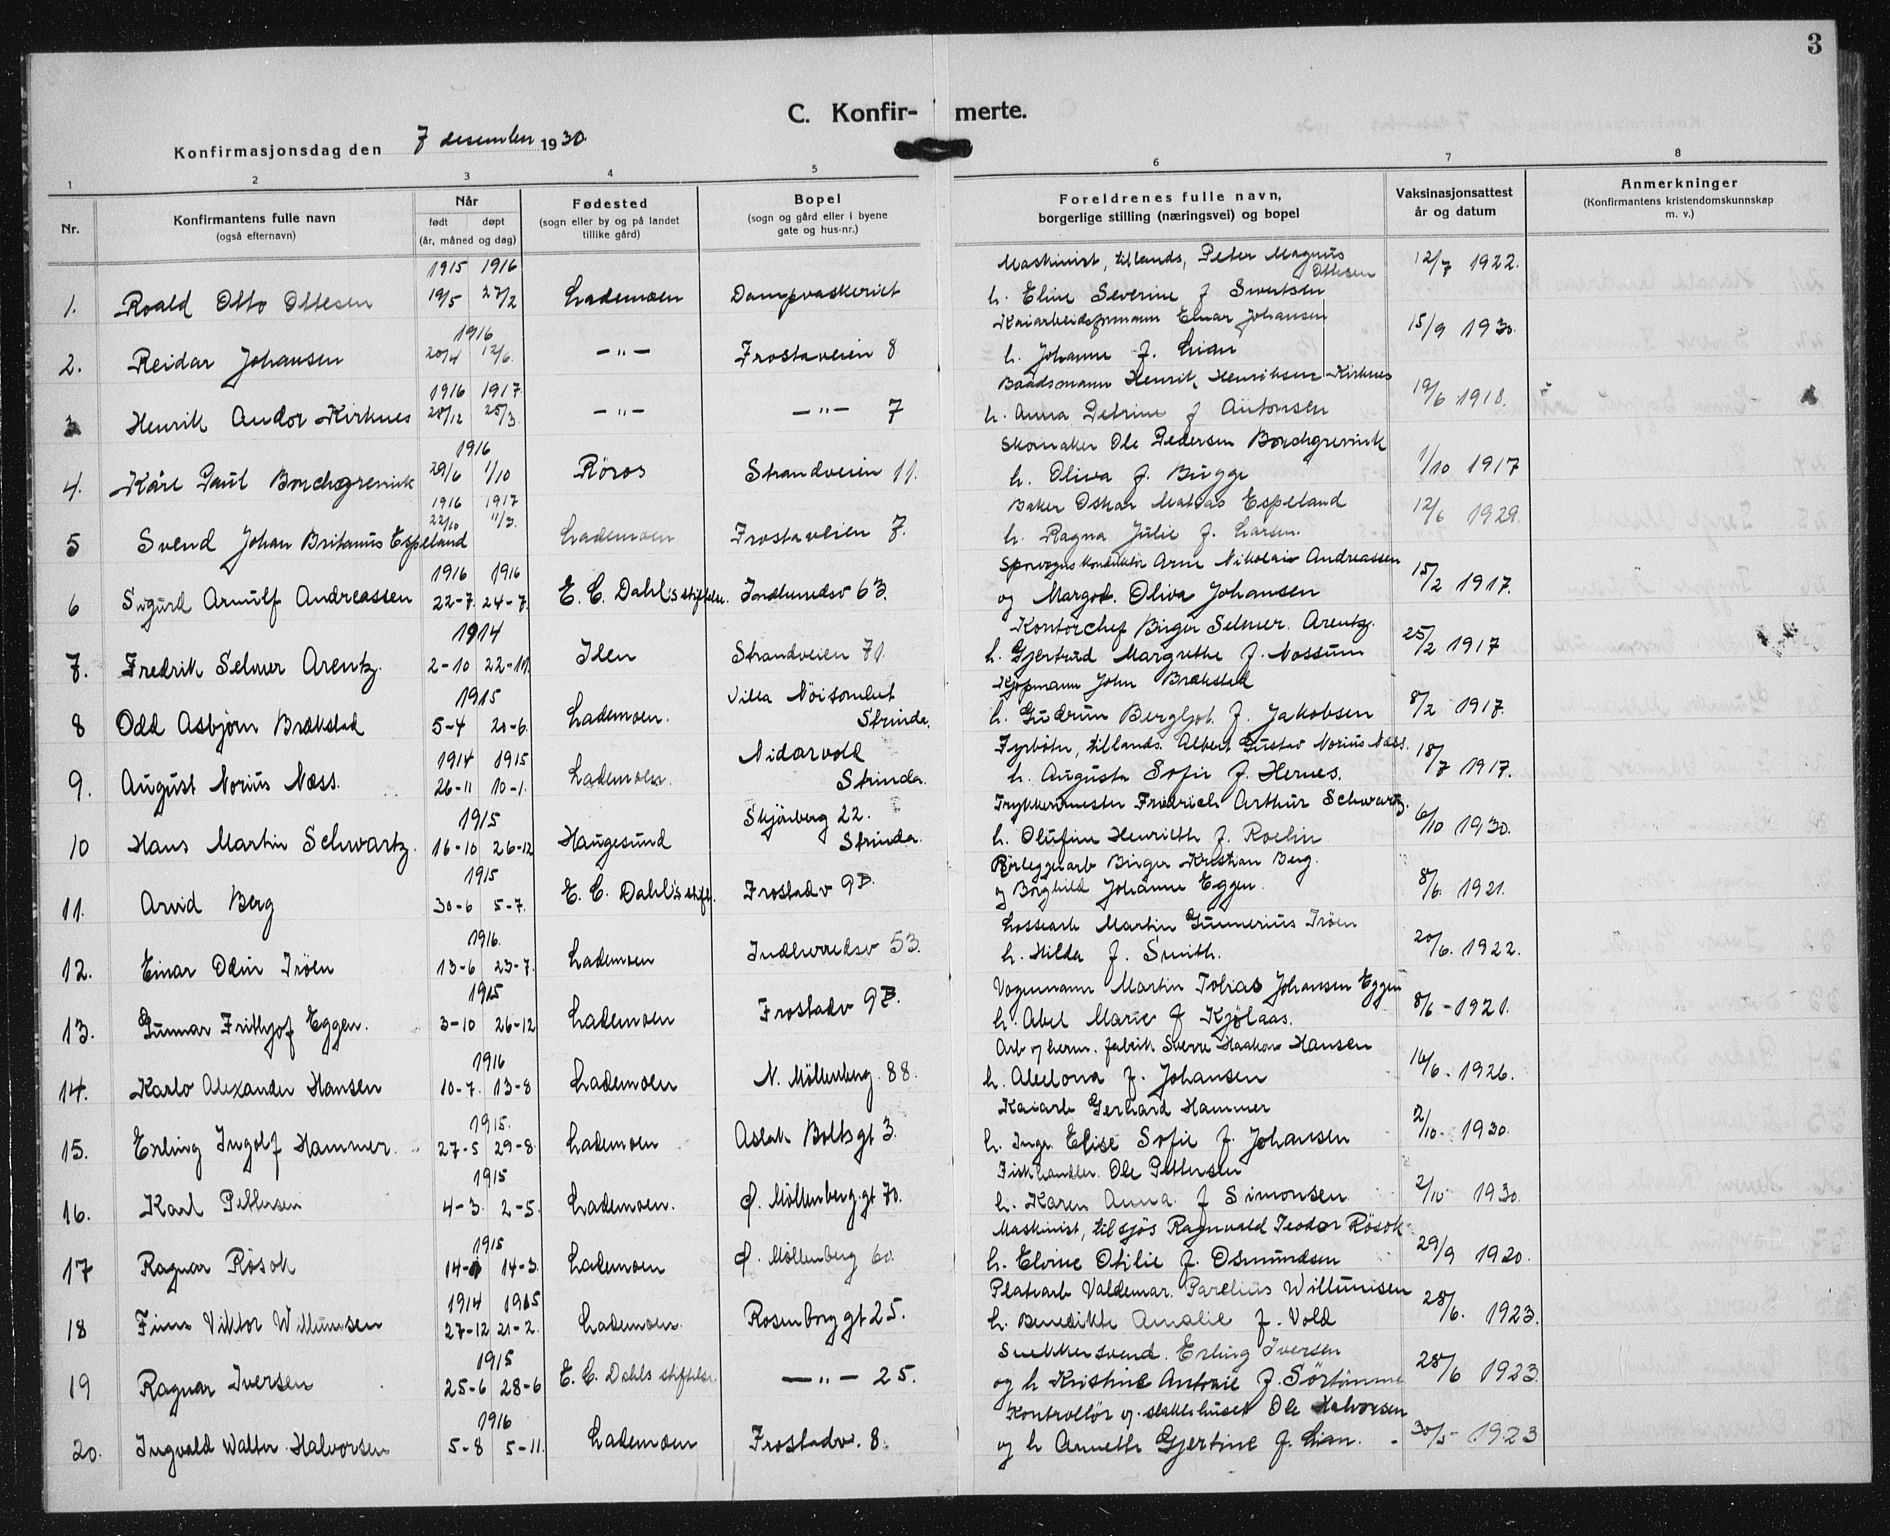 3
C. Konfir- merte.
Konfirmasjonsdag den 7 desember 1930
1 2 3 4 5 6 7 8
Nr.
Konfirmantens fulle navn
(også efternavn)
Når
født døpt
(år, måned og dag)
Fødested
(sogn eller by og på landet
tillike gård)
Bopel
(sogn og gård eller i byene
gate og hus-nr.)
Foreldrenes fulle navn,
borgerlige stilling (næringsvei) og bopel
Vaksinasjonsattest
år og datum
Anmerkninger
(Konfirmantens kristendomskunnskap
m. v.)
1915 1916 Maskinist, tillands, Peter Magnus Ottesen 12/7 1922.
1. Roald Otto Ottesen 19/5 27/2 Lademoen Dampvaskeriet h. Eline Severine f Sivertsen
1916 Kaiarbeidsformann Einar Johansen 15/9 1930.
2. Reidar Johansen 20/4 12/6. —"— Frostaveien 8 h. Johanne f. Lian
1916 1917. Baadsmann Henrik Henriksen Kirknes 19/6 1918.
3 Henrik Andor Kirknes 28/12 25/3. —"— —"— 7 h. Anna Petrine f Antonsen
1916 Skomaker Ole Pedersen Borchgrevink 1/10 1917
4. Kåre Paul Borchgrevink 29/6 1/10 Röros Strandveien 11. h. Oliva f. Bugge
1916 1917 Baker Oskar Matias Espeland 12/6 1929.
5 Svend Johan Britanus Espeland 22/10 11/3. Lademoen Frostaveien 7. h. Ragna Julie f. Larsen.
1916 1916 Sporvognskonduktör Arne Nikolai Andreassen 15/2 1917.
6 Sigurd Arnulf Andreassen 22-7. 24-7. E. C. Dahl's stiftelse. Indherredsv 63. og Margot Oliva Johansen
1914 Kontorchef Birger Selmer Arentz. 25/2 1917
7. Fredrik Selmer Arentz 2-10 22-11. Ilen Strandveien 71. h. Gjertrud Margrethe f. Nossum
1915 Villa Nöisomhet Kjøpmann John Brækstad 8/2 1917.
8 Odd Asbjørn Brækstad 5-4 20-6. Lademoen. Strinda. h. Gudrun Bergljot f. Jakobsen
1914 1915 Nidarvoll Fyrbøter, tillands. Albert Gustav Norius Næss. 18/7 1917.
9. August Norius Næss. 26-11 10-1. Lademoen. Strinda. h. Augusta Sofie f. Hernes.
1915 Skjörberg 22. Trykkerimester Fredrich Arthur Schwartz. 6/10 1930.
10 Hans Martin Schwartz. 16-10 26-12 Haugesund Strinda. h. Olufine Henriette f.
1915 Rörleggerarb Birger Kristian Berg. 8/6. 1921.
11. Arvid Berg 30-6 5-7. E. C. Dahl's stift. Frostadv 9B. og Borghild Johanne Eggen.
1916. Lossearb Martin Gunnerius Tröen 20/6. 1922.
12. Einar Odin Tröen 13-6 23-7. Lademoen Indherredsv 53. h. Hilda f. Smith.
1915 Vognmann Martin Tobias Johansen Eggen 8/6 - 1921.
13. Gunnar Frithjof Eggen. 3-10 26-12 Lademoen Frostadv 9B. h. Abel Marie f Kjölaas.
1916 Arb v herm. fabrik Sverre Haakon Hansen 16/6. 1926.
14. Karlo Alexander Hansen 10-7. 13-8 Lademoen N. Möllenberg. 88. h. Abelona f. Johansen
1915. Kaiarb Gerhard Hammer 2/10. 1930.
15. Erling Ingolf Hammer. 27-5 29-8. Lademoen Aslak Boltsgt 3. h. Inga Elise Sofie f. Johansen
1915 Fiskehandler. Ole Pettersen 2/10 1930.
16. Karl Pettersen 4-3. 2-5. Lademoen. Ø. Möllenberg.gt 70. h. Karen Anna f Simonsen
1915 Maskinist, tilsjøs Ragnvald Teodor Rösok. 29/9 1920.
17 Ragnar Rösok 14-1 14-3. Lademoen Ø. Möllenberg 60. h. Elvine Otilie f. Osmundsen
1914 1915 Platearb Valdemar. Parelius Willumsen 28/6. 1923.
18 Finn Viktor Willumsen 27-12 21-2. Lademoen. Rosenborg gt 25. h. Benedikte Amalie f. Vold
1915 Snekkersvend. Erling Iversen 28/6 1923.
19 Ragnar Iversen 25-6 28-6 E. C. Dahls stiftelse —"— 25. og h Kristine Antonie f. Sörtömme
1916 Kontrollör v. slaktehuset Ole Halvorsen 30/5- 1923
20. Ingvald Walter Halvorsen 5-8 5-11. Lademoen Frostadv. 8. og h Annette Gjertine f. Lian.